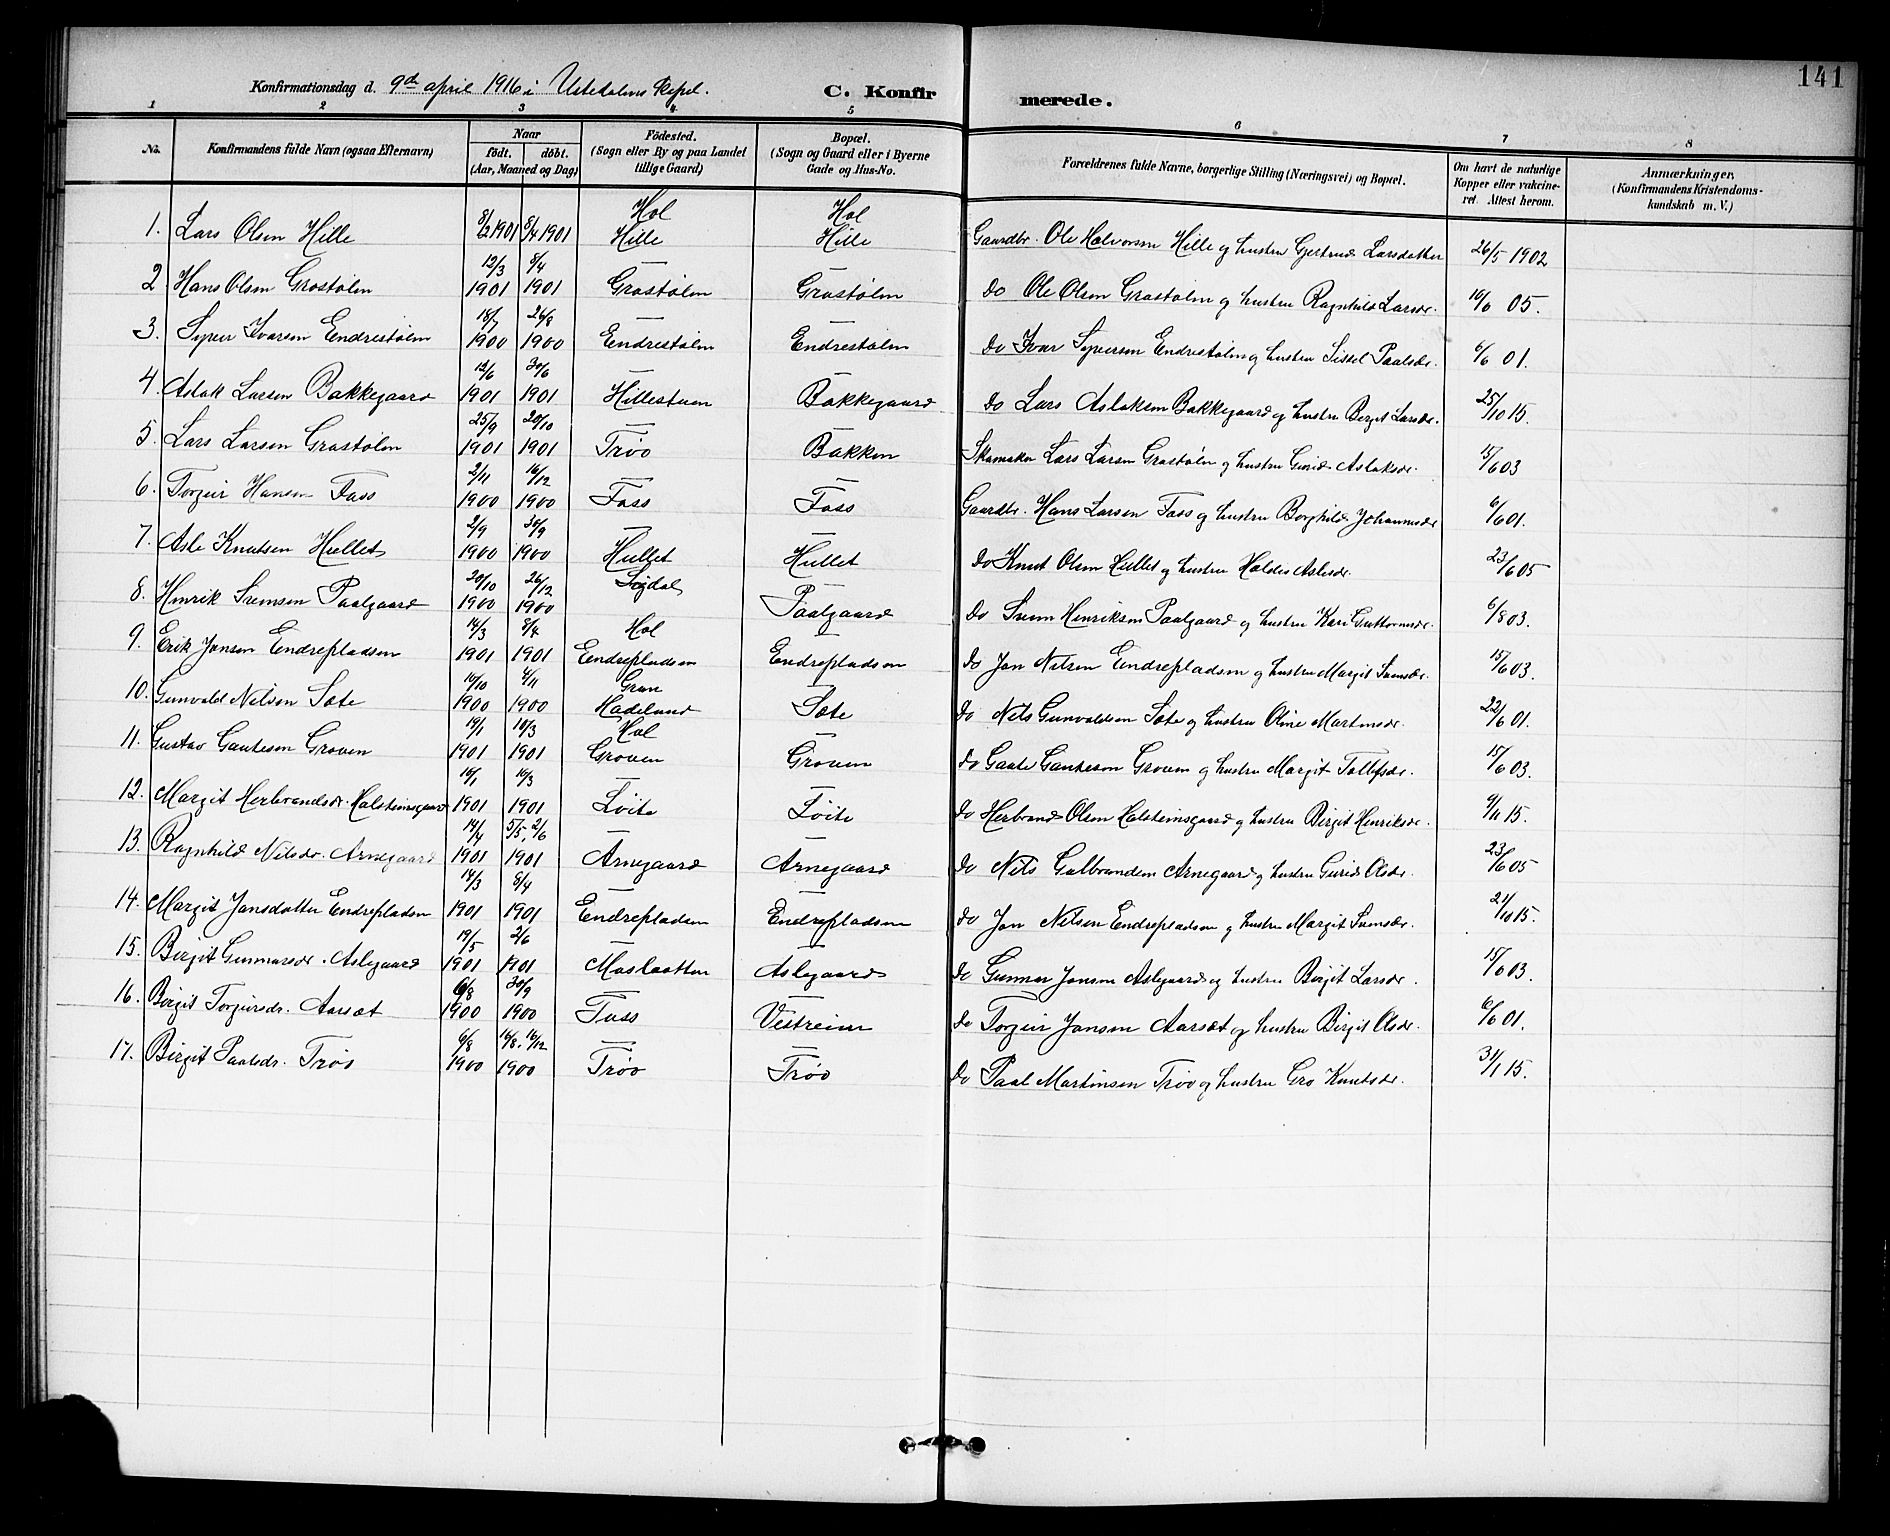 141
Konfirmationsdag d. 9de april 1916 i Ustedalens kapel. C. Konfirmerede.
1 2 3 4 5 6 7 8
No. Konfirmandens fulde Navn (ogsaa Efternavn) Naar födt. döbt. (Aar, Maaned og Dag) Födested. (Sogn eller By og paa Landet tillige Gaard) Bopæl. (Sogn og Gaard eller i Byerne Gade og Hus-No. Forældrenes fulde Navne, borgerlige Stilling (Næringsvei) og Bopæl. Om havt de naturlige Kopper eller vakcineret. Attest herom. Anmærkninger. (Konfirmandens Kristendomskundskab m. V.)
1. Lars Olsen Hille 8/2 1901 8/4 1901 Hol Hille Hol Hille Gaardbr. Ole Halvorsen Hille og hustru Gjertrud Larsdatter 26/5 1902
2 Hans Olsen Grostølen 12/3 1901 8/4 1901 — Grostølen — Grostølen do Ole Olsen Grostølen og hustru Ragnhild Larsdr. 16/6 05.
3. Syver Ivarsen Endrestølen 18/7 1900 26/8 1900 — Endrestølen — Endrestølen do Ivar Syversen Endrestølen og hustru Sissel Paalsdr. 6/6 01.
4. Aslak Larsen Bakkegaard 12/6 1901 30/6 1901 — Hillestuen — Bakkegaard do Lars Aslaksen Bakkegaard og hustru Birgit Larsdr. 25/10 15.
5. Lars Larsen Grostølen 25/9 1901 20/10 1901 — Trøo — Bakken Skomaker Lars Larsen Grostølen og hustru Guri Aslaksdr. 15/6 03
6. Torgeir Hansen Foss 2/11 1900 16/12 1900 — Foss — Foss Gaardbr. Hans Larsen Foss og hustru Borghild Johannesdr 6/6 01.
7. Asle Knutsen Hullet 2/9 1900 30/9 1900 — Hullet — Hullet do Knut Olsen Hullet og hustru Haldis Aslesdr. 23/6 05
8. Henrik Svensen Paalgaard 20/10 1900 26/12 1900 Sigdal — Paalgaard do Svein Henriksen Paalgaard og hustru Kari Guttormsdr. 6/8 03.
9. Erik Jonsen Endrepladsen 14/3 1901 8/4 1901 Hol Endrepladsen — Endrepladsen do Jon Nilsen Endrepladsen og hustru Margit Svensdr. 15/6 03.
10. Gunvald Nilsen Sote 14/10 1900 4/11 1900 Gran Hadeland — Sote do Nils Gunvaldsen Sote og hustru Oline Martinsdr. 22/6 01.
11. Gustav Gautesen Groven 19/1 1901 10/3 1901 Hol Groven — Groven do Gaute Gautesen Groven og hustru Margit Tollefsdr. 15/6 03.
12. Margit Herbrandsdr. Holsteinsgaard 16/1 1901 10/3 1901 — Løite — Tøite do Herbrand Olsen Holsteinsgaard og hustru Birgit Henriksdr. 9/11 15.
13. Ragnhild Nilsdr. Arnegaard 14/4 1901 5/5, 2/6 1901 — Arnegaard — Arnegaard do Nils Gulbrandsen Arnegaard og hustru Gurid Olsdr. 23/6 05
14. Margit Jonsdatter Endrepladsen 14/3 1901 8/4 1901 — Endrepladsen — Endrepladsen do Jon Nilsen Endrepladsen og hustru Margit Svensdr. 21/10 15.
15. Birgit Gunnarsdr. Aslegaard 19/5 1901 2/6 1901 — Moslaatten — Aslegaard do Gunnar Jonsen Aslegaard og hustru Birgit Larsdr. 15/6 03.
16. Birgit Torgeirsdr. Aarsæt 6/8 1900 30/9 1900 — Tuss — Vestreim do Torgeir Jonsen Aarsæt og hustru Birgit Olsdr. 6/6 01.
17. Birgit Paalsdr. Trøo 6/8 1900 16/8, 16/12 1900 — Trøo — Trøo do Paal Martinsen Trøo og hustru Gro Knutsdr. 31/1 15.